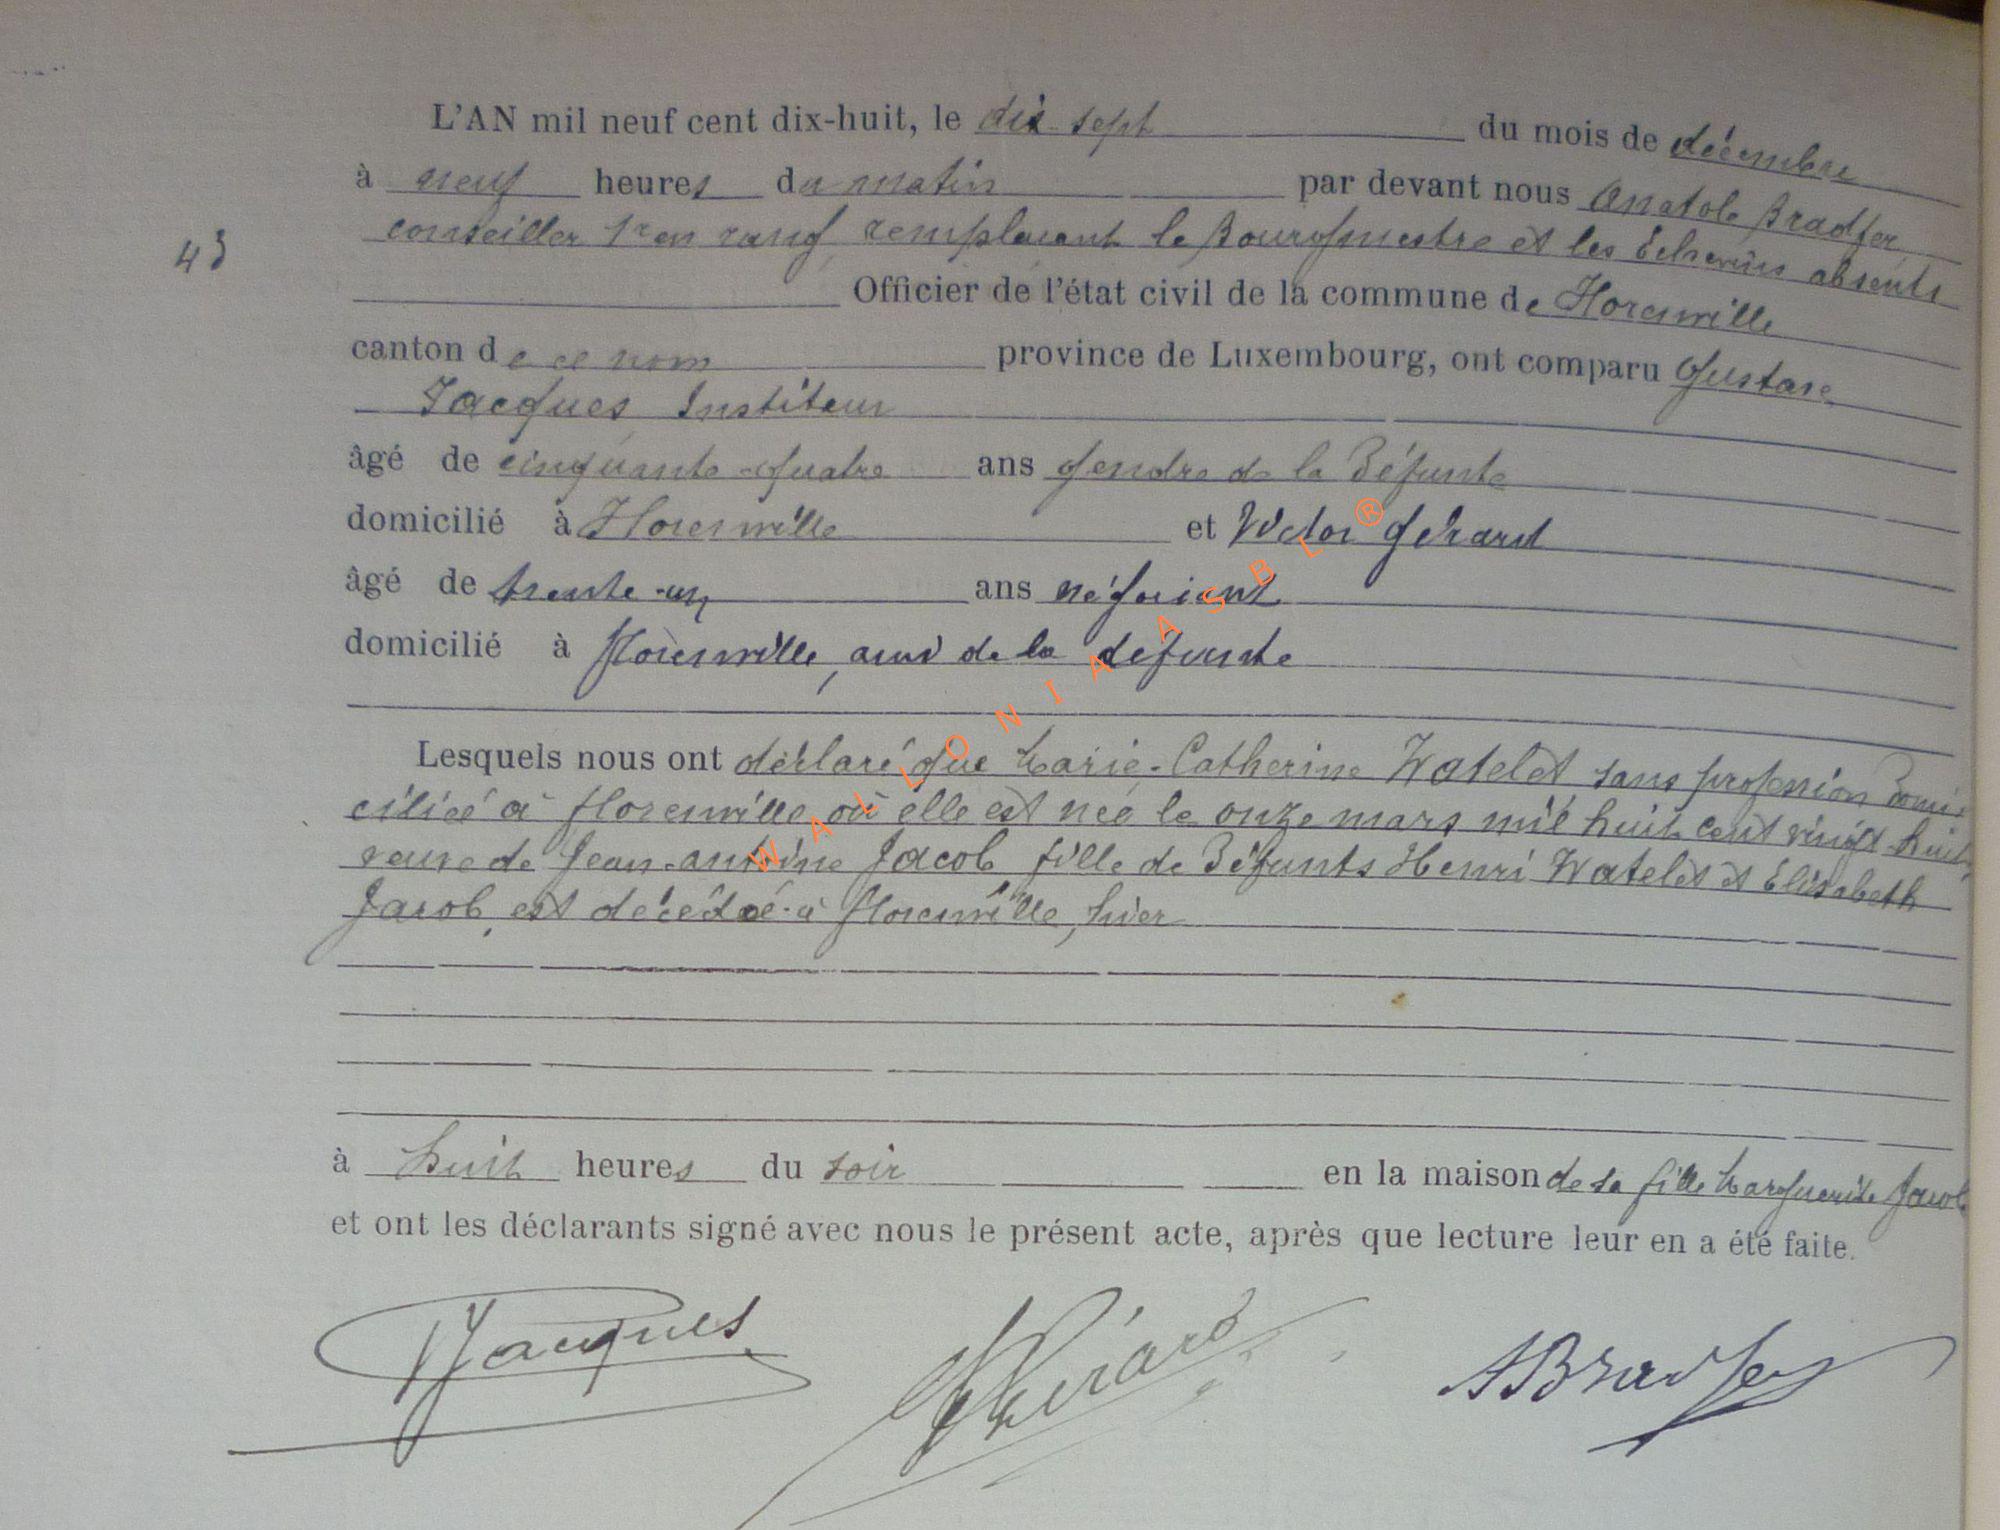 L'AN mil neuf cent dix-huit, le dix-sept du mois de décembre
à neuf heures du matin par devant nous Anatole Bradfer
conseiller 1er en rang, remplaçant le Bourgmestre et les Echevins absents
43
Officier de l'état civil de la commune de Florenville
canton de ce nom province de Luxembourg, ont comparu Gustave
Jacques Instituteur
âgé de cinquante-quatre ans gendre de la Défunte
domicilié à Florenville et Victor Gérard
âgé de trente-un ans négociant
domicilié à Florenville, ami de la défunte
Lesquels nous ont déclaré que Marie-Catherine Watelet sans profession domi
ciliée à Florenville où elle est née le onze mars mil huit cent vingt-huit,
veuve de Jean-Antoine Jacob, fille de Défunts Henri Watelet et Elisabeth
Jacob, est décédée à Florenville, hier
à huit heures du soir en la maison de sa fille Marguerite Jacob
et ont les déclarants signé avec nous le présent acte, après que lecture leur en a été faite.
Jacques Gérard ABradfer
WALLONIA ASBL ®